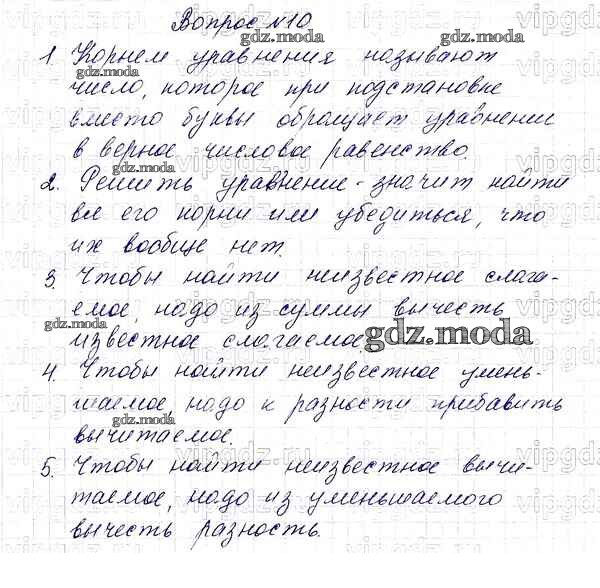 Вопрос №10
1. Корнем уравнения называют
число, которое при подстановке
вместо буквы обращает уравнении
в верное числовое равенство.
2. Решить уравнение - значит найти
все его корни или убедиться, что
их вообще нет.
3. Чтобы найти неизвестное слага-
емое, надо из суммы вычесть
известное слагаемое.
4. Чтобы найти неизвестное умень-
шаемое, надо к разности прибавить
вычитаемое.
5. Чтобы найти неизвестное вычи-
таемое, надо из уменьшаемого
вычесть разность.
gdz.moda
gdz.moda
gdz.moda
gdz.moda
gdz.moda
gdz.moda
gdz.moda